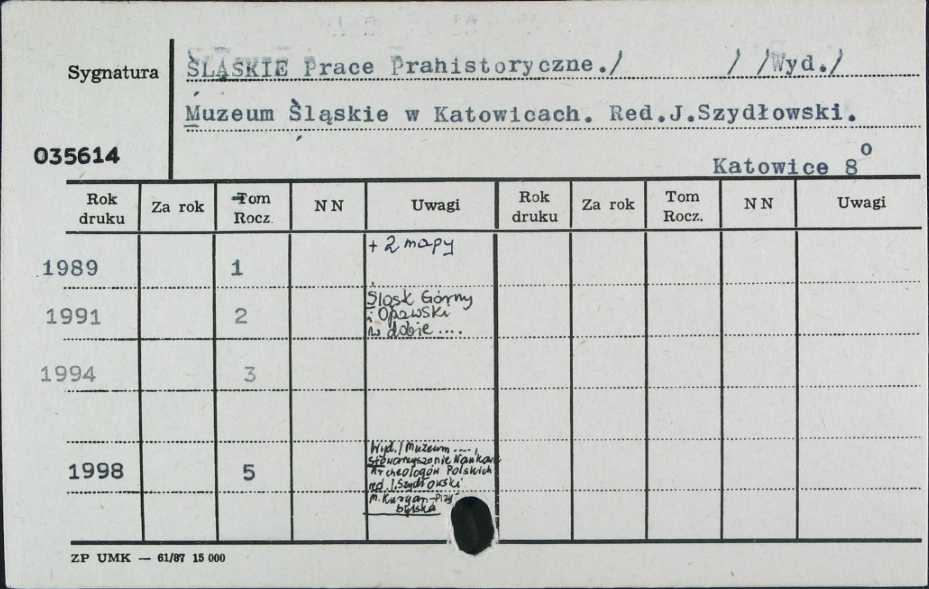 Sygnatura
ŚLĄSKIE Prace Prahistoryczne./ / /Wyd./
Muzeum Śląskie w Katowicach. Red.J.Szydłowski.
035614
Katowice 8o
Rok druku Za rok Tom Rocz. NN Uwagi Rok druku Za rok Tom Rocz. NN Uwagi
+ 2 mapy
1989 1
Śląsk Górny
1991 2 i Opawski
w dobie ....
1994 3
Wyd./Muzeum ....,
Stowarzyszenie Naukowe
1998 5 Archeologów Polskich
red. J. Szydłowski
M. Kurgan-Przy
bylska
ZP UMK — 61/87 15 000